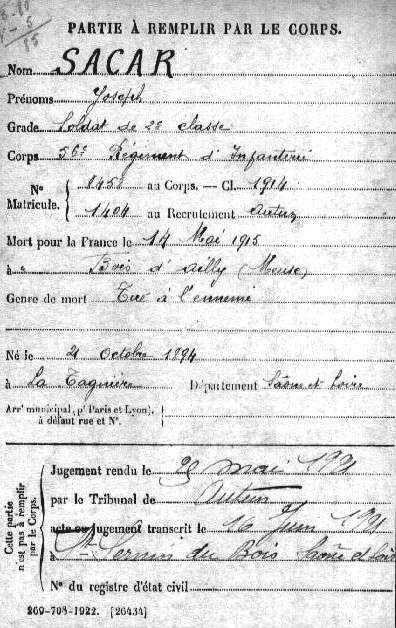 PARTIE À REMPLIR PAR LE CORPS.
Nom SACAR
Prénoms Joseph
Grade Soldat de 2e classe
Corps 56e Régiment d'Infanterie
N° Matricule. { 8458 au Corps. — Cl. 1914
1404 au Recrutement Autun
Mort pour la France le 14 Mai 1915
à Bois d'Ailly (Meuse)
Genre de mort Tué à l'ennemi
Né le 21 octobre 1894
à La Tagnière Département Saône et Loire
Arr' municipal (p' Paris et Lyon), à défaut rue et N°.
Cette partie n'est pas à remplir par le Corps.
Jugement rendu le mai 1921
par le Tribunal de Autun
acte ou jugement transcrit le 16 Juin 1921
à St Sernin du Bois Saône et Loire
N° du registre d'état civil
269-708-1922. [26434]